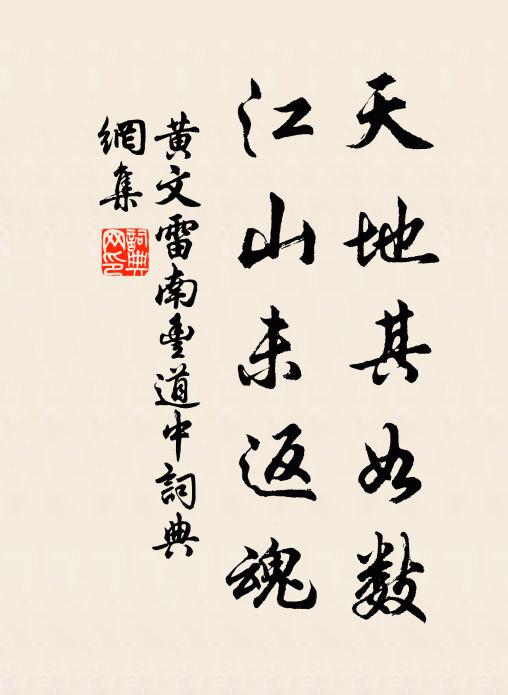 天地其如數
江山未返魂
黃文雷南豊道中詞典
網集
詞典網印